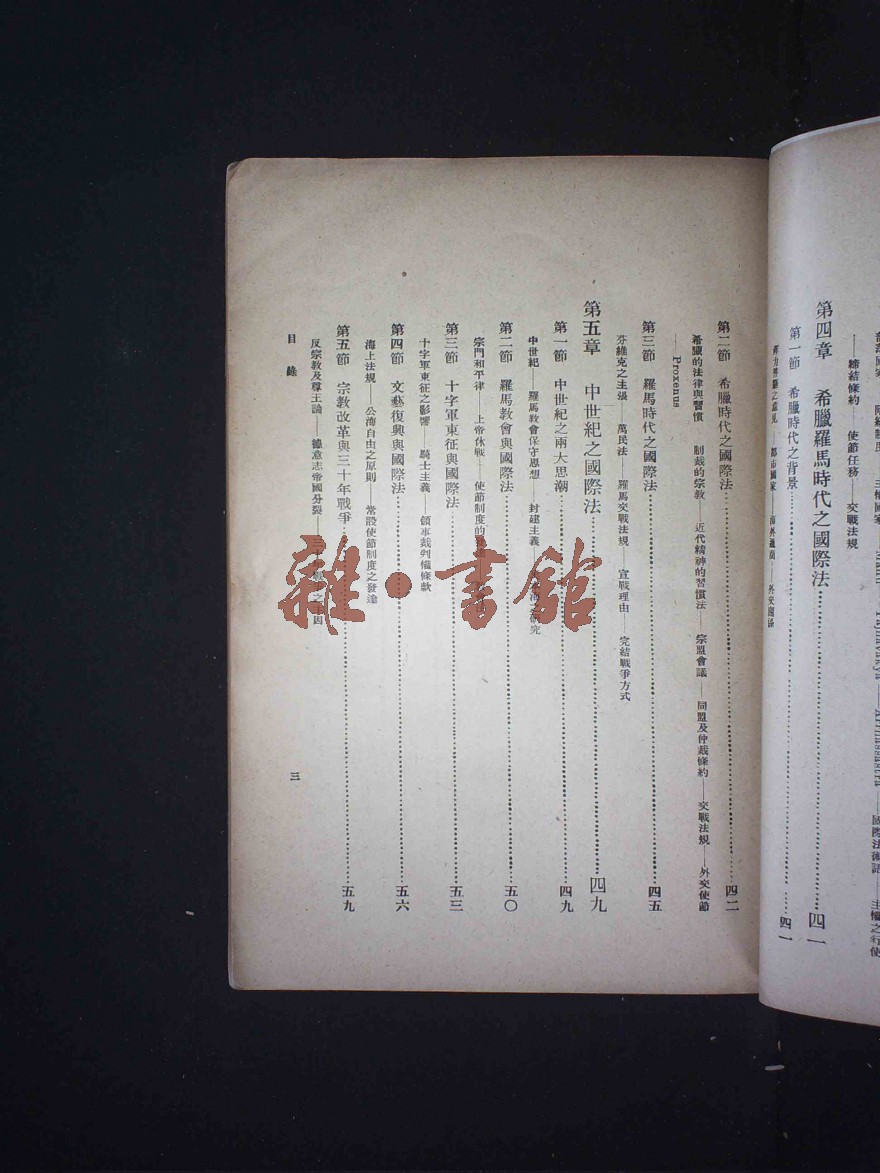 部落國家
主權國家
國際法術語
主權之行使
——締結條約——使節任務——交戰法規
第四章 希臘羅馬時代之國際法……四一
第一節 希臘時代之背景……四一
都市國家
第二節 希臘時代之國際法……四二
希臘的法律與習慣——制裁的宗教——近代精神的習慣法——宗盟會議——同盟及仲裁條約——交戰法規——外交使節
——Proxenus
第三節 羅馬時代之國際法……四五
芬維克之主張——萬民法——羅馬交戰法規——宣戰理由——完結戰爭方式
第五章 中世紀之國際法……四九
第一節 中世紀之兩大思潮……四九
中世紀——羅馬教會保守思想——封建主義——研究
第二節 羅馬教會與國際法……五〇
宗門和平律——上帝休戰——使節制度的
第三節 十字軍東征與國際法……五三
十字軍東征之影響——騎士主義——領事裁判權條款
第四節 文藝復興與國際法……五六
海上法規——公海自由之原則——常設使節制度之發達
第五節 宗教改革與三十年戰爭……五九
反宗教及尊王論——德意志帝國分裂——三十年戰爭之主因
目錄
三
雜·書館